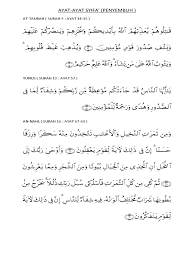 AYAT-AYAT SHIFA' (PENYEMBUH)
AT-TAUBAH ( SURAH 9 : AYAT 14-15 )
قَـٰتِلُوهُمْ يُعَذِّبْهُمُ ٱللَّهُ بِأَيْدِيكُمْ وَيُخْزِهِمْ وَيَنصُرْكُمْ عَلَيْهِمْ
وَيَشْفِ صُدُورَ قَوْمٍ مُّؤْمِنِينَ وَيُذْهِبْ غَيْظَ قُلُوبِهِمْ ۗ
وَيَتُوبُ ٱللَّهُ عَلَىٰ مَن يَشَآءُ ۗ وَٱللَّهُ عَلِيمٌ حَكِيمٌ
YUNUS ( SURAH 10 : AYAT 57)
يَـٰٓأَيُّهَا ٱلنَّاسُ قَدْ جَآءَتْكُم مَّوْعِظَةٌ مِّن رَّبِّكُمْ وَشِفَآءٌ لِّمَا فِى
ٱلصُّدُورِ وَهُدًى وَرَحْمَةٌ لِّلْمُؤْمِنِينَ
AN-NAHL ( SURAH 16 : AYAT 67-69)
وَمِن ثَمَرَٰتِ ٱلنَّخِيلِ وَٱلْأَعْنَـٰبِ تَتَّخِذُونَ مِنْهُ سَكَرًا وَرِزْقًا
حَسَنًا ۗ إِنَّ فِى ذَٰلِكَ لَـَٔايَةً لِّقَوْمٍ يَعْقِلُونَ وَأَوْحَىٰ رَبُّكَ إِلَى
ٱلنَّحْلِ أَنِ ٱتَّخِذِى مِنَ ٱلْجِبَالِ بُيُوتًا وَمِنَ ٱلشَّجَرِ وَمِمَّا يَعْرِشُونَ
ثُمَّ كُلِى مِن كُلِّ ٱلثَّمَرَٰتِ فَٱسْلُكِى سُبُلَ رَبِّكِ ذُلُلًا ۚ يَخْرُجُ مِنۢ
بُطُونِهَا شَرَابٌ مُّخْتَلِفٌ أَلْوَٰنُهُۥ فِيهِ شِفَآءٌ لِّلنَّاسِ ۗ إِنَّ فِى ذَٰلِكَ لَـَٔايَةً
لِّقَوْمٍ يَتَفَكَّرُونَ